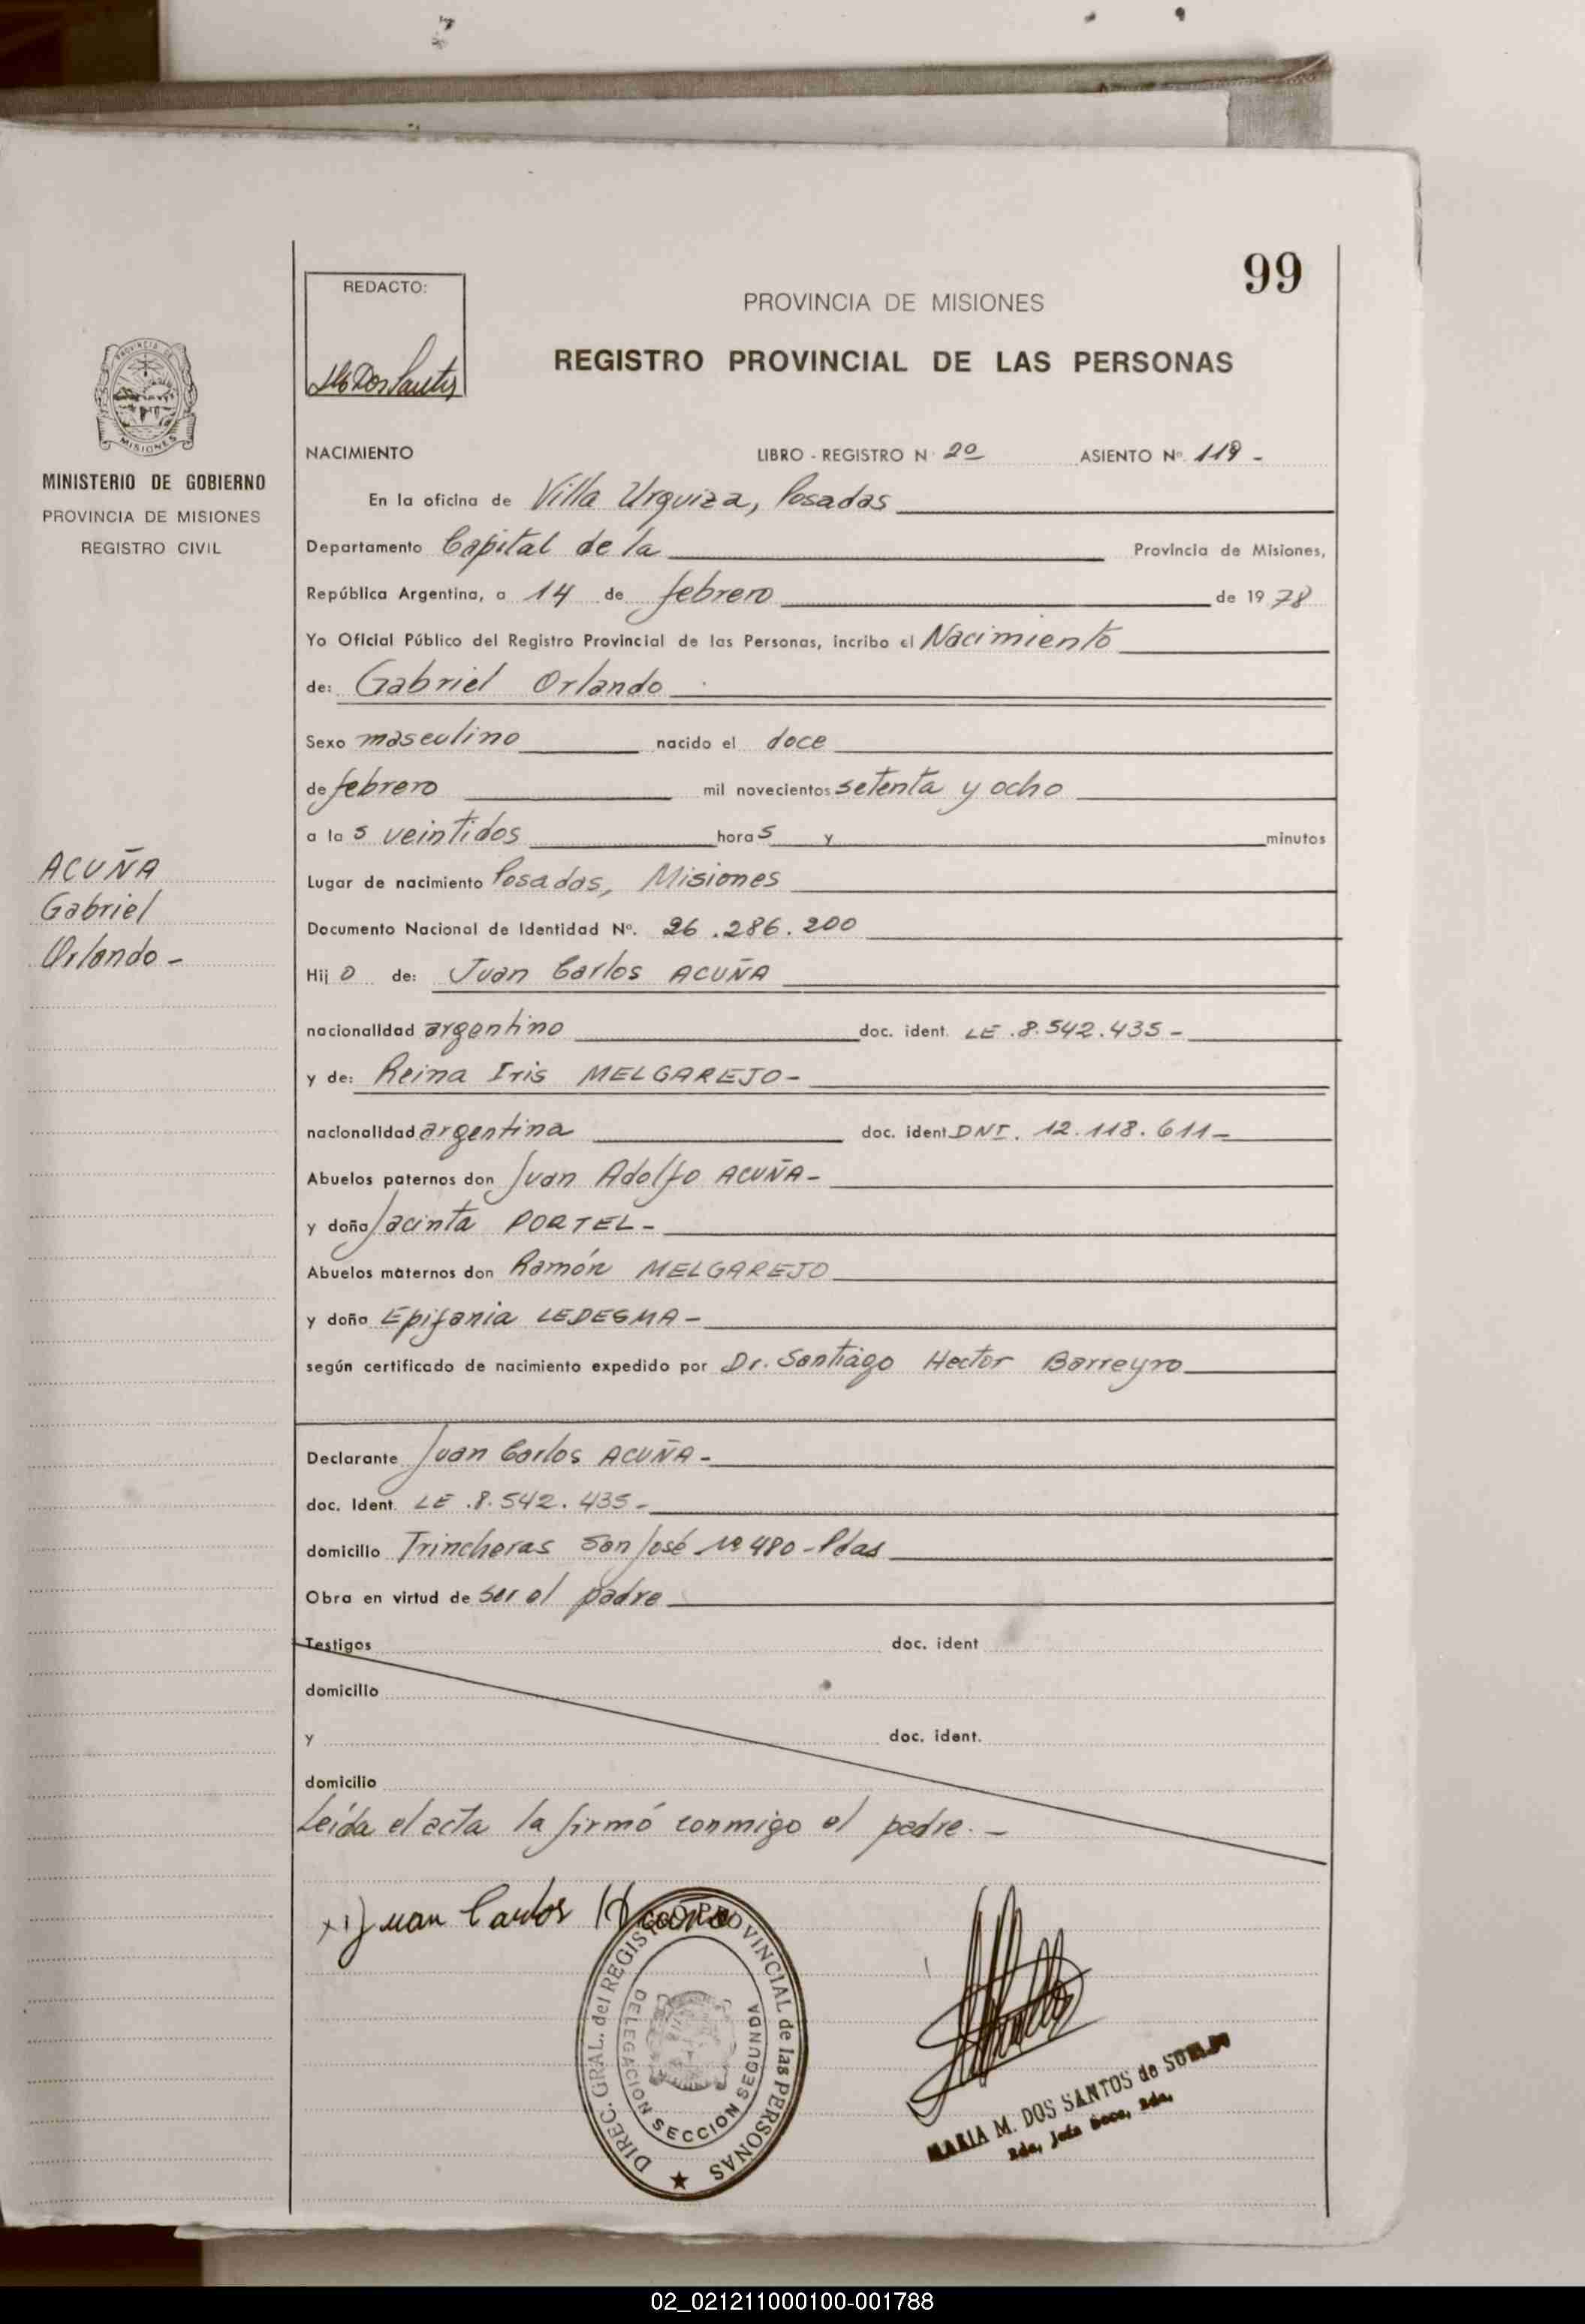 99
REDACTO:
PROVINCIA DE MISIONES
REGISTRO PROVINCIAL DE LAS PERSONAS
PROVINCIA DE
MISIONES
MINISTERIO DE GOBIERNO
PROVINCIA DE MISIONES
REGISTRO CIVIL
ACUÑA
Gabriel
Orlando -
NACIMIENTO LIBRO - REGISTRO N 2º ASIENTO Nº. 119 -
En la oficina de Villa Urquiza, Posadas
Departamento Capital de la Provincia de Misiones,
República Argentina, a 14 de febrero de 1978
Yo Oficial Público del Registro Provincial de las Personas, incribo el Nacimiento
de: Gabriel Orlando
Sexo masculino nacido el doce
de febrero mil novecientos setenta y ocho
a las veintidos horas y minutos
Lugar de nacimiento Posadas, Misiones
Documento Nacional de Identidad Nº. 26.286.200
Hijo de: Juan Carlos ACUÑA
nacionalidad argentino doc. ident. LE .8.542.435 -
y de: Reina Iris MELGAREJO -
nacionalidad argentina doc. ident DNI. 12.118.611 -
Abuelos paternos don Juan Adolfo ACUÑA -
y doña Jacinta PORTEL -
Abuelos maternos don Ramón MELGAREJO
y doña Epifania LEDESMA -
según certificado de nacimiento expedido por Dr. Santiago Hector Barreyro
Declarante Juan Carlos ACUÑA -
doc. Ident. LE .8.542.435 -
domicilio Trincheras San José Nº 480 - Pdas
Obra en virtud de ser el padre
Testigos doc. ident
domicilio
y doc. ident.
domicilio
Leída el acta la firmó conmigo el padre. -
Juan Carlos Acuña
DIREC. GRAL. del REGISTRO PROVINCIAL de las PERSONAS
DELEGACION SECCION SEGUNDA
MARIA M. DOS SANTOS de
02_021211000100-001788